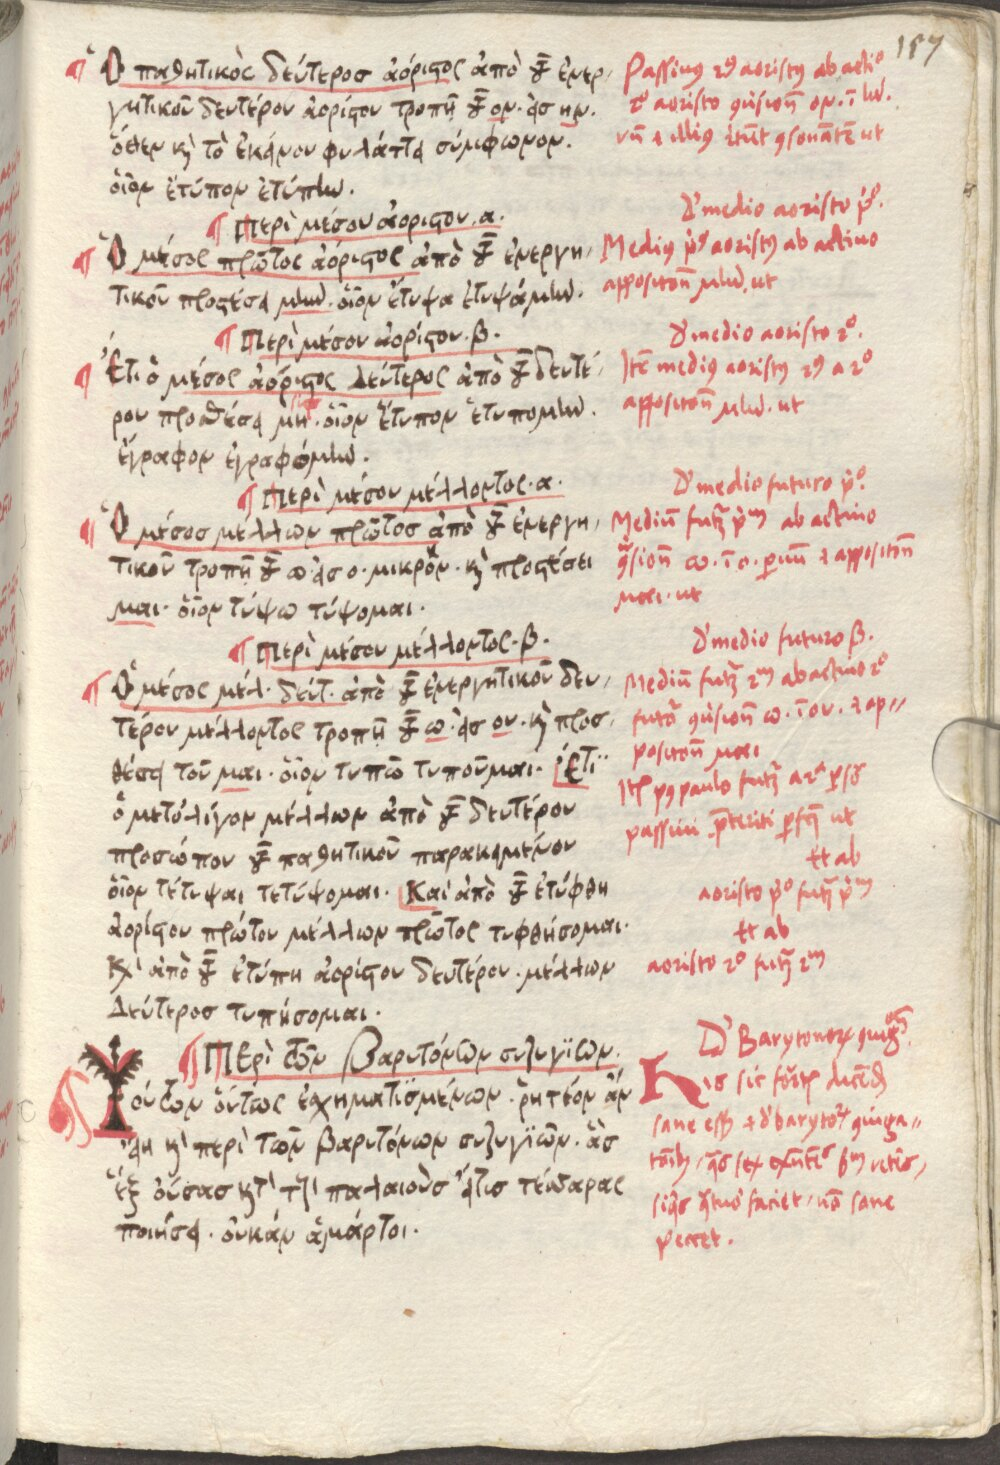 157
Ὁ παθητικὸς δεύτεροσ ἀόριστος ἀπὸ τοῦ ἐνερ-
γητικοῦ δευτέρου ἀορίστου τροπῇ τοῦ ον. εἰσ ην.
ὅθεν κỳ τὸ ἐκείνου φυλάττει σύμφωνον.
οἷον ἔτυπον ἐτύπην.
Περὶ μέσου ἀορίστου. α.
Ὁ μέσος πρῶτος ἀόριστος ἀπὸ τοῦ ἐνεργη-
τικοῦ προσθέσει μην. οἷον ἔτυψα ἐτυψάμην.
Περὶ μέσου ἀορίστου. β.
Ἔτι ὁ μέσος ἀόριστος δεύτερος ἀπὸ τοῦ δευτέ-
ρου προσθέσει μην. οἷον ἔτυπον ἐτυπομην.
ἔγραφον ἐγραφόμην.
Περὶ μέσου μέλλοντος. α.
Ὁ μέσοσ μέλλων πρῶτοσ ἀπὸ τοῦ ἐνεργη-
τικοῦ τροπῇ τοῦ ω εἰσ ο. μικρὸν. κỳ προσθέσει
μαι. οἷον τύψω τύψομαι.
Περὶ μέσου μέλλοντος. β.
Ὁ μέσος μέλ. δεύτ. ἀπὸ τοῦ ἐνεργητικοῦ δευ-
τέρου μέλλοντος τροπῇ τοῦ ω. εἰσ ου. κỳ προσ-
θέσει τοῦ μαι. οἷον τυπῶ τυποῦμαι. ἔτι
ὁ μετολίγον μέλλων ἀπὸ τοῦ δευτέρου
προσώπου τοῦ παθητικοῦ παρακειμένου
οἷον τέτυψαι τετύψομαι. Καὶ ἀπὸ τοῦ ἐτύφθη
ἀορίστου πρώτου μέλλων πρῶτος τυφθήσομαι.
Κỳ ἀπὸ τοῦ ἐτύπη ἀορίστου δευτέρου. μέλλων
Δεύτεροσ τυπήσομαι.
Περὶ τῶν βαρυτόνων συζυγϊῶν.
Τούτων οὕτως ἐσχηματϊσμένων. ῥητέον ἂν
εἴη κỳ περὶ τῶν βαρυτόνων συζυγϊῶν. ἃς
ἓξ οὔσας κατὰ τοὺς παλαιοὺσ εἴτισ τέσσαρας
ποιήσει. οὐκὰν ἁμάρτοι.
Passivus 2us aoristus ab activo
2o aoristo conversione on. in in.
unde et illius servat consonantem ut
De medio aoristo po.
Medius pus aoristus ab activo
appositione μην. ut
De medio aoristo 2o.
Item medius aoristus 2us a 2o
appositione μην. ut
De medio futuro po.
Medium futurum pm ab activo
conversione ω. in ο. parvum et appositione
μαι. ut
De medio futuro β.
Medium futurum 2m ab activo 2o
futuro conversione ω. in ου. et ap-
positione μαι
Item post paulo futurum a 2a persona
passivi preteriti perfecti ut
Et ab
aoristo po futurum pm
Et ab
aoristo 2o futurum 2m
De Barytonorum coniugatione.
His sic formatis dicendum
sane esset et de barytonorum coniuga-
tionibus, quas sex existentes secundum veteres,
siquis quatuor faciet, non sane
peccet.